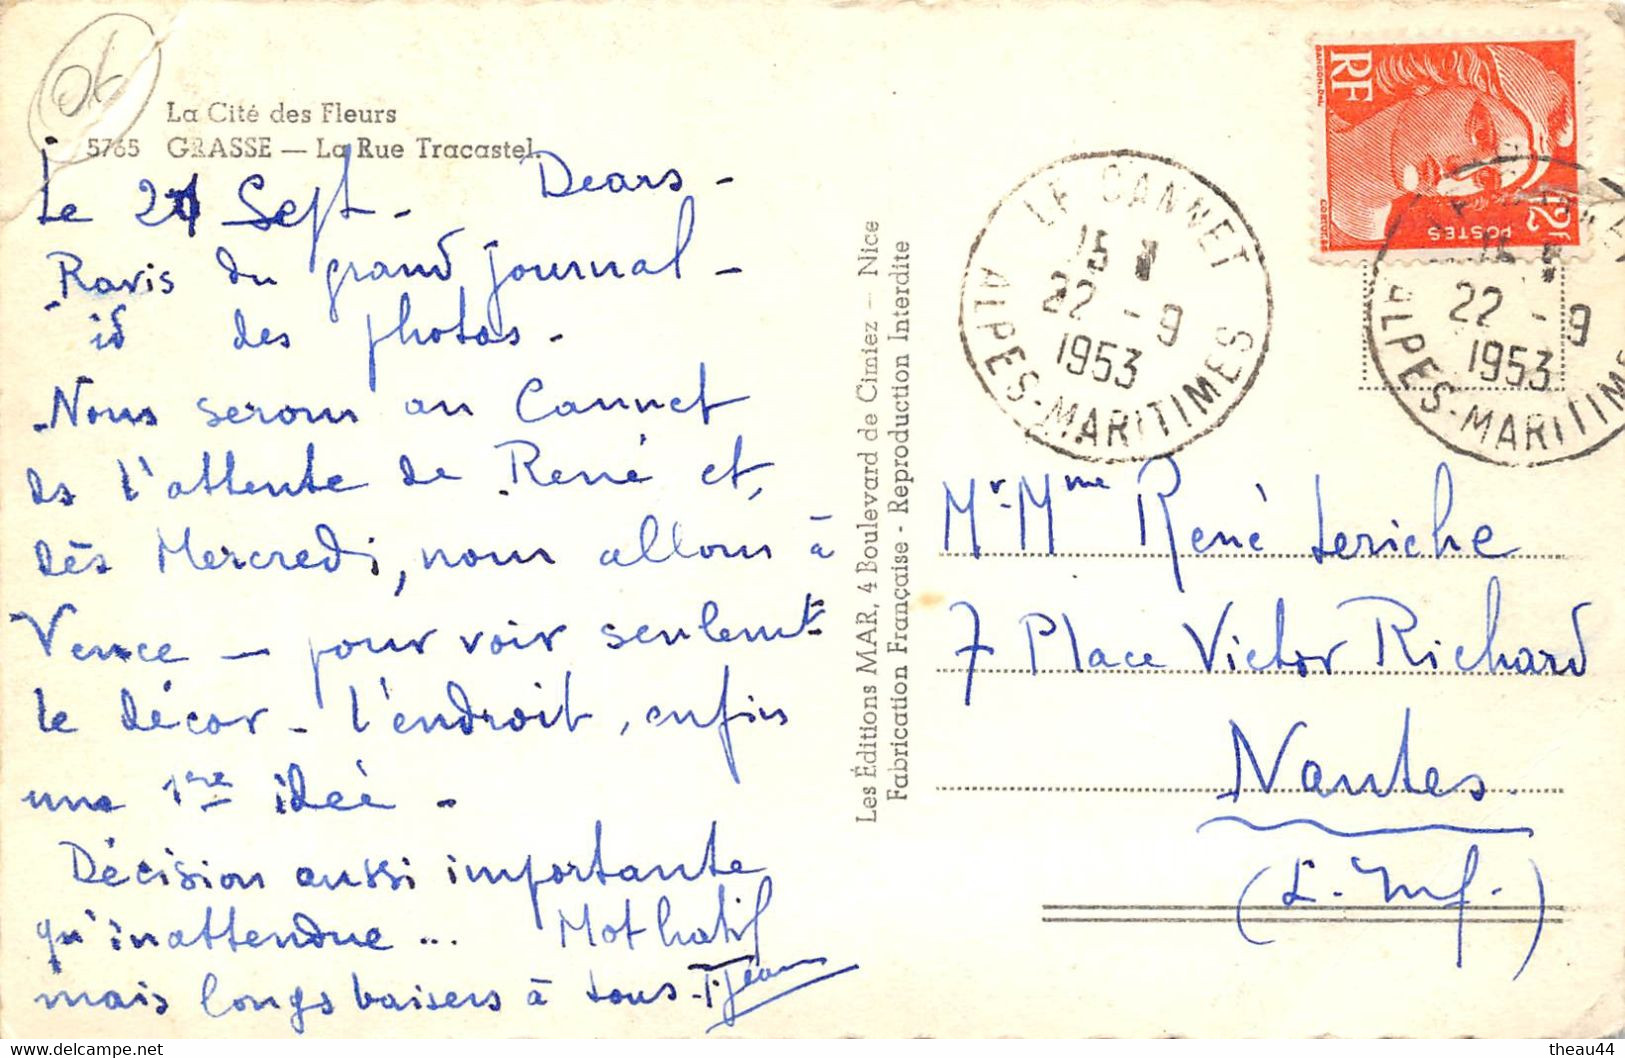 La Cité des Fleurs
5765 GRASSE — La Rue Tracastel.
Le 21 Sept - Dears -
Ravis du grand journal -
id des photos -
Nous serons au Cannet
ds l'attente de René et,
dès Mercredi, nous allons à
Vence - pour voir seulemt
le décor - l'endroit, enfin
une 1re idée -
Décision aussi importante
qu'inattendue ... Mot hatif
mais longs baisers à tous - T. Jean
Les Éditions MAR, 4 Boulevard de Cimiez — Nice
Fabrication Française - Reproduction Interdite
RF
POSTES
12f
LE CANNET
15
22 - 9
1953
ALPES-MARITIMES
15
22 - 9
1953
ALPES-MARITIMES
Mr Mme René Leriche
7 Place Victor Richard
Nantes.
(L. Inf.)
theau44